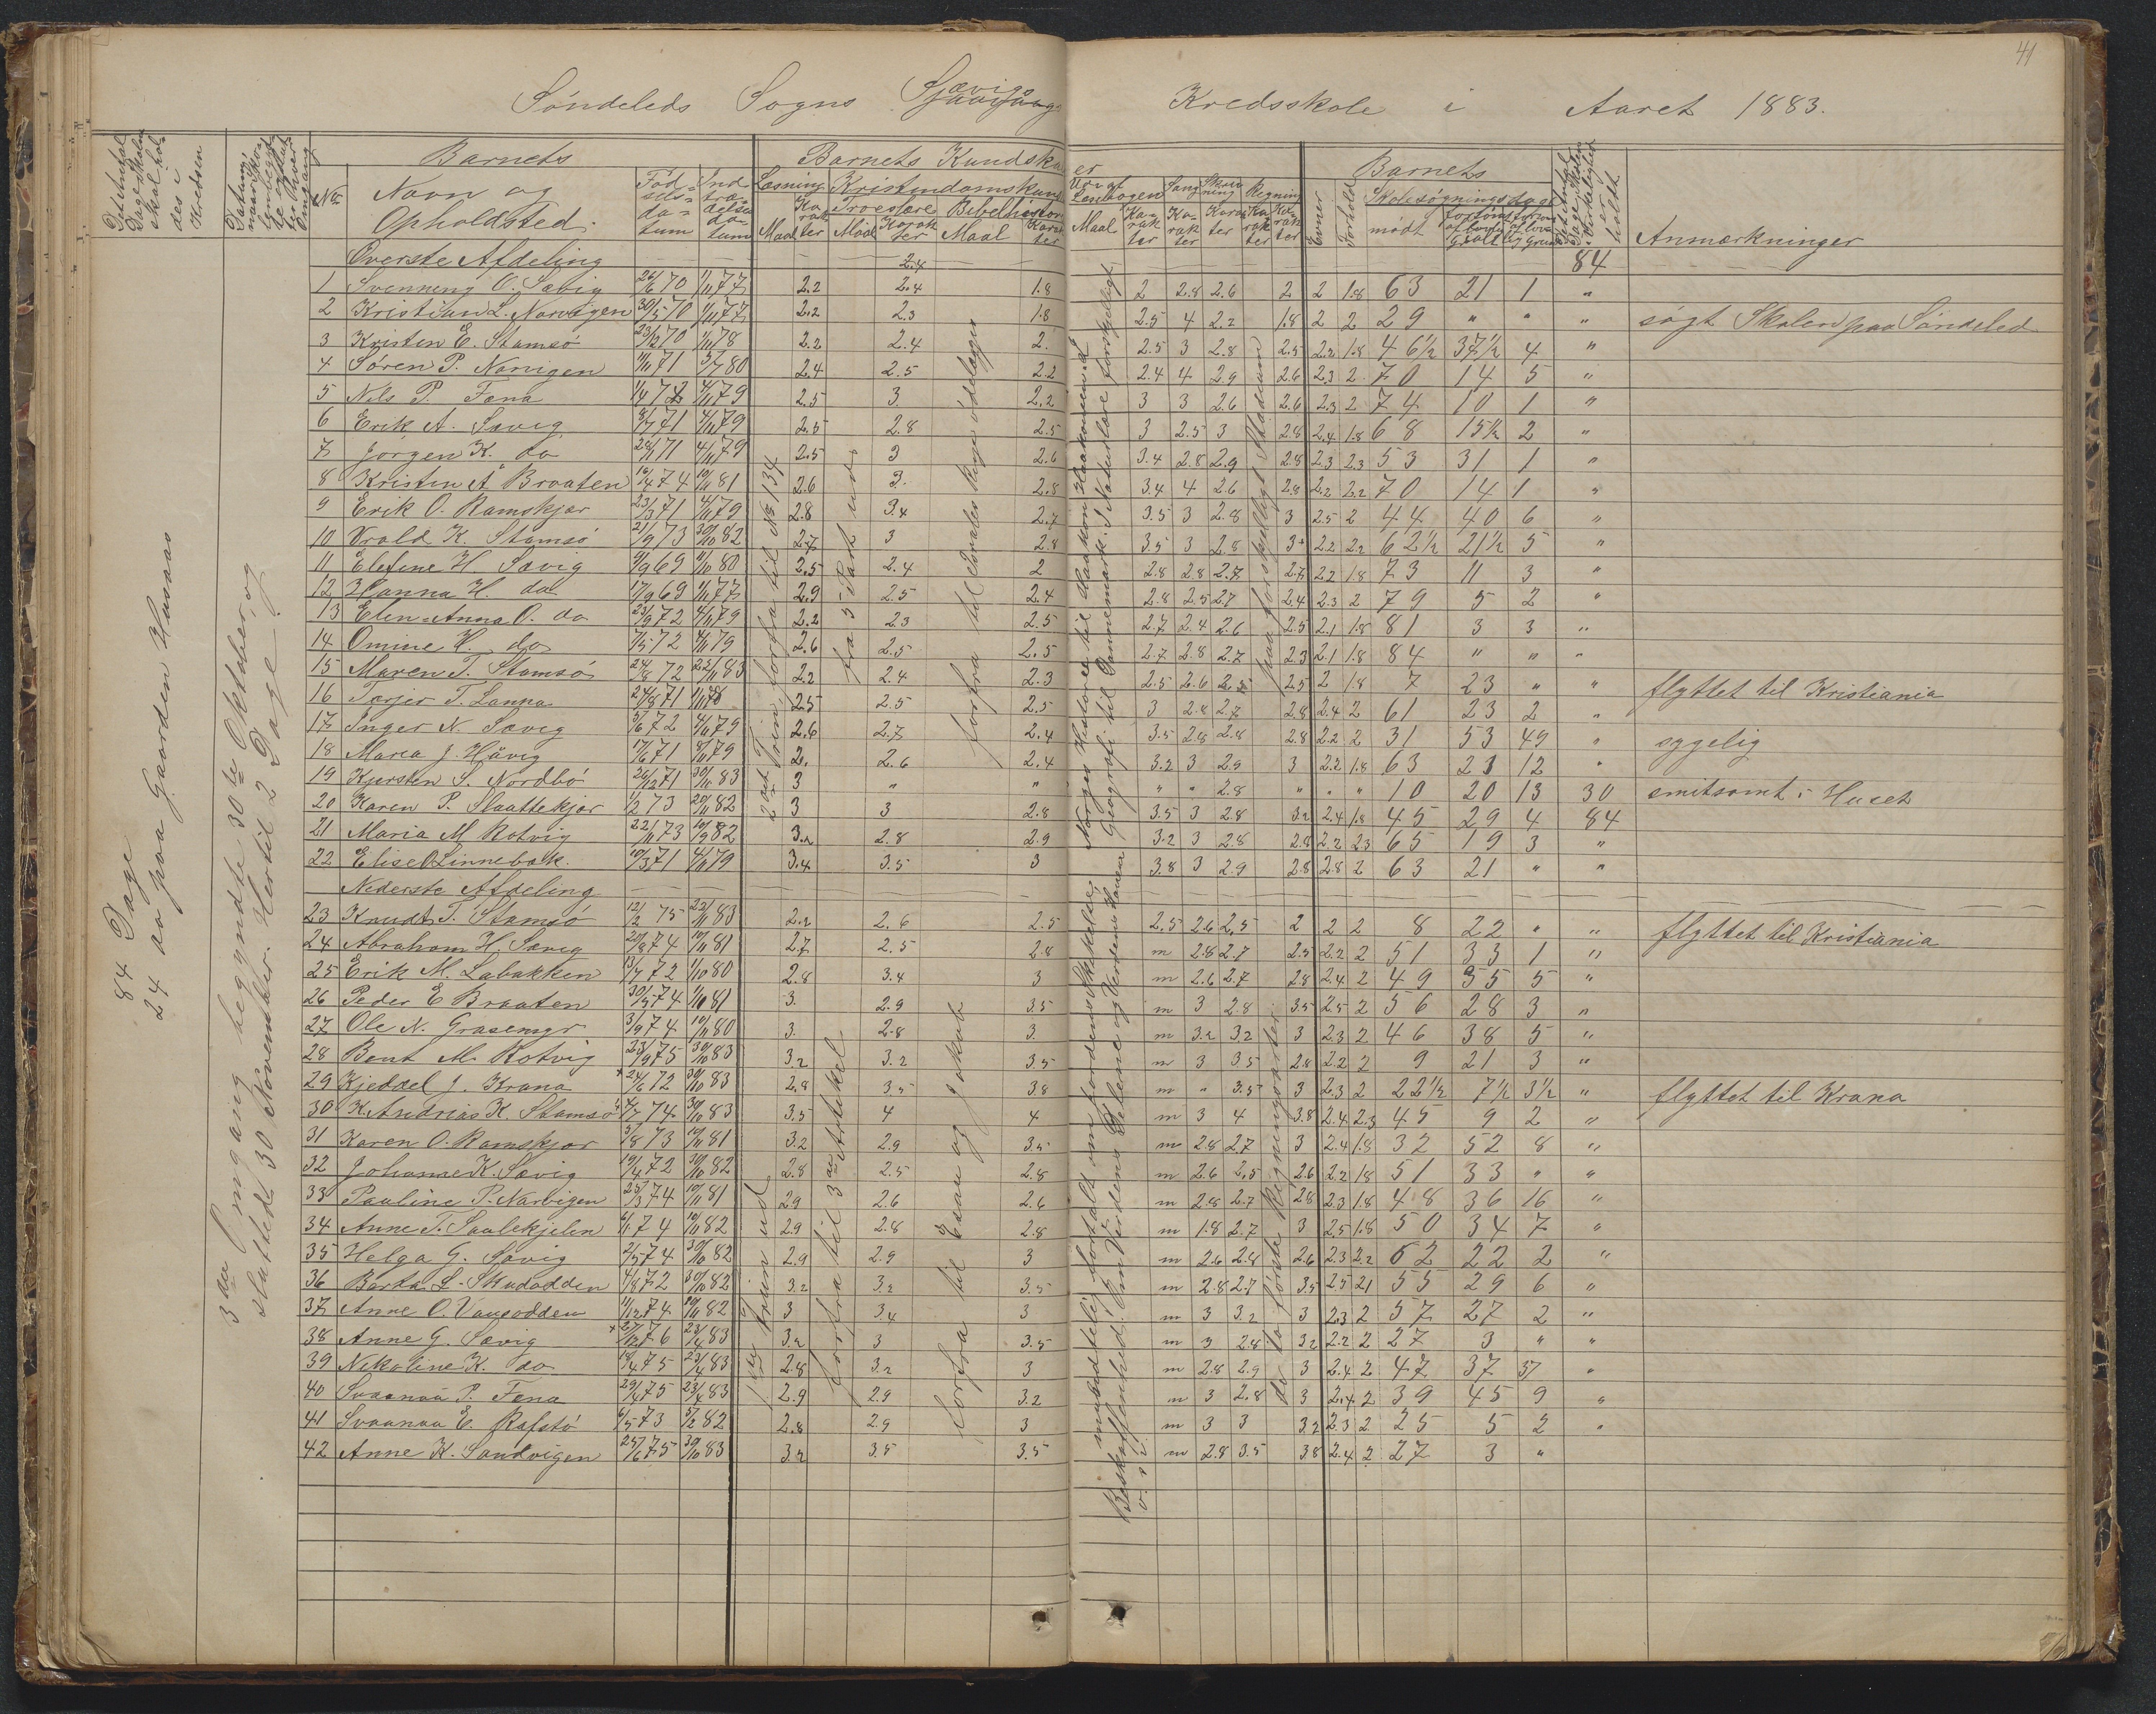 41
Søndeleds Sogns Sævigs Kredsskole i Aaret 1883.
Det Antal Dage Skolen skal holdes i Kredsen
Datum, naar Skolen begyndte og sluttede hver Omgang
No
Barnets
Navn og Opholdsted.
Fødselsdatum
Indtrædelsesdatum
Barnets Kundskaber
Læsning
Maal
Karakter
Kristendomskundskab
Troeslære
Maal
Karakter
Bibelhistorie
Maal
Karakter
Udv. af Læsebogen
Maal
Karakter
Sang
Karakter
Skrivning
Karakter
Regning
Karakter
Barnets
Evner
Forhold
Skolesøgningsdage
mødt
forsømt af lovlig Grund
Det Antal Dage Skolen i Virkelighed er holdt
Anmærkninger
84 Dage
24 do paa Gaarden Husaas
3die Omgang begyndte 30te Oktober, og
sluttede 30 November. Hertil 2 Dage
Øverste Afdeling 2.4 84
1 Svenning O. Sævig 26/6 70 1/11 77 2.2 2.4 1.8 2 2.8 2.6 2 2 1.8 63 21 1 "
2 Kristian L. Narvigen 30/5 70 1/11 77 2.2 2.3 1.8 2.5 4 2.2 1.8 2 2 29 " " " søgt Skolen paa Søndeled
3 Kristen E. Stamsø 23/2 70 1/11 78 2.2 2.4 2. 2.5 3 2.8 2.5 2.2 1.8 46½ 37½ 4 "
4 Søren P. Narvigen 1/11 71 5/7 80 2.4 2.5 2.2 2.4 4 2.9 2.6 2.3 2 70 14 5 "
5 Nils P. Fena 4/11 79 2.5 3 2.2 3 3 2.6 2.6 2.3 2 74 10 1 "
6 Erik A. Sævig 3/7 71 4/11 79 2.5 2.8 2.5 3 2.5 3 2.8 2.4 1.8 68 15½ 2 "
7 Jørgen K. do 4/11 79 2.5 3 2.6 3.4 2.8 2.9 2.8 2.3 2.3 53 31 1 "
8 Kristen A. Braaten 10/4 74 10/11 81 2.6 3. 2.8 3.4 4 2.6 2.8 2.2 2.2 70 14 1 "
9 Erik O. Ramskjær 23/3 71 4/11 79 2.8 3.4 2.7 3.5 3 2.8 3 2.5 2 44 40 6 "
10 Vrold K. Stamsø 21/9 73 30/10 82 2.7 3 2.8 3.5 3 2.8 3+ 2.2 2.2 62½ 21½ 5 "
11 Elefine H Sævig 9/9 69 1/10 80 2.5 2.4 2 2.8 2.8 2.7 2.7 2.2 1.8 73 11 3 "
12 Hanna H. do 17/9 69 1/11 77 2.9 2.5 2.4 2.8 2.5 2.7 2.4 2.3 2 79 5 2 "
13 Elen Anna O. do 23/9 72 4/11 79 2.2 2.3 2.5 2.7 2.4 2.6 2.5 2.1 1.8 81 3 3 "
14 Omine H. do 7/5 72 4/11 79 2.6 2.5 2.5 2.7 2.8 2.7 2.3 2.1 1.8 84 " " "
15 Maren T. Stamsø 24/8 72 22/11 83 2.2 2.4 2.3 2.5 2.6 2.5 2.5 2 1.8 7 23 " " flyttet til Kristiania
16 Tarjer T. Lanna 24/8 71 1/11 78 2.5 2.5 2.5 3 2.8 2.7 2.8 2.4 2 61 23 2 "
17 Inger N. Sævig 5/6 72 4/11 79 2.6 2.7 2.4 3.5 2.8 2.8 2.8 2.2 2 31 53 49 " sygelig
18 Maria J. Håvig 17/6 71 8/11 79 2. 2.6 2.4 3.2 3 2.9 3 2.2 1.8 63 21 12 "
19 Kjersten S. Nordbø 26/12 71 30/10 83 3 " " " " 2.8 " " " 10 20 13 30 smitsomt i Huset
20 Karen P. Slaattekjær 1/2 73 20/11 82 3 3 2.8 3.5 3 2.8 3.2 2.4 1.8 45 29 4 84
21 Maria M Rotvig 22/11 73 10/9 82 3.2 2.8 2.9 3.2 3 2.8 2.8 2.2 2.3 65 19 3 "
22 Elise O Linnebæk. 10/3 71 4/11 79 3.4 3.5 3 3.8 3 2.9 2.8 2.8 2 63 21 " "
Nederste Afdeling
23 Knudt T. Stamsø 12/2 75 22/11 83 2.2 2.6 2.5 2.5 2.6 2.5 2 2 2 8 22 " " flyttet til Kristiania
24 Abraham H. Sævig 20/8 74 10/11 81 2.7 2.5 2.8 m 2.8 2.7 2.5 2.2 2 51 33 1 "
25 Erik M. Labakken 13/7 72 1/10 80 2.8 3.4 3 m 2.6 2.7 2.8 2.4 2 49 35 5 "
26 Peder E Braaten 30/5 74 1/10 81 3. 2.9 3.5 m 3 2.8 3.5 2.5 2 56 28 3 "
27 Ole N. Grasemyr 3/9 74 10/11 80 3. 2.8 3. m 3.2 3.2 3 2.3 2 46 38 5 "
28 Bent M. Rotvig 23/9 75 30/10 83 3.2 3.2 3.5 m 3 3.5 2.8 2.2 2 9 21 3 "
29 Kjeddel J. Krana 24/6 72 30/10 83 2.8 3.5 3.8 m " 3.5 3 2.3 2 22½ 7½ 3½ " flyttet til Krana
30 K. Andrias K. Stamsø 4/7 74 30/10 83 3.5 4 4 m 3 4 3.8 2.4 2.3 45 9 2 "
31 Karen O. Ramskjær 5/8 73 10/11 81 3.2 2.9 3.5 m 2.8 2.7 3 2.4 1.8 32 52 8 "
32 Johanne K. Sævig 19/4 72 30/10 82 2.8 2.5 2.8 m 2.6 2.5 2.6 2.2 1.8 51 33 " "
33 Pauline P. Narvigen 25/3 74 10/11 81 2.9 2.6 2.6 m 2.8 2.7 2.8 2.3 1.8 48 36 16 "
34 Anne T. Saalekjelen 6/1 74 10/11 82 2.9 2.8 2.8 m 1.8 2.7 3 2.5 1.8 50 34 7 "
35 Helga G. Sævig 2/5 74 30/10 82 2.9 2.9 3 m 2.6 2.8 2.6 2.3 2.2 62 22 2 "
36 Berta L. Skudodden 4/8 72 30/10 82 3.2 3.2 3.5 m 2.8 2.7 3.5 2.5 2.1 55 29 6 "
37 Anne O. Vaasodden 11/12 74 30/10 82 3 3.4 3 m 3 3.2 3 2.3 2 57 27 2 "
38 Anne G. Sævig 27/12 76 23/4 83 3.2 3 3.5 m 3 2.8 3.2 2.2 2 27 3 " "
39 Nikoline K. do 18/4 75 23/4 83 2.8 3.2 3 m 2.8 2.9 3 2.4 2 47 37 37 "
40 Svaanaa P. Fena 29/4 75 23/4 83 2.9 2.9 3.2 m 3 2.8 3 2.4 2 39 45 9 "
41 Svaanaa E. Rafstø 6/5 73 5/2 82 2.8 2.9 3 m 3 3 3.2 2.3 2 25 5 2 "
42 Anne K. Sandvigen 25/6 75 30/10 83 3.2 3.5 3.5 m 2.8 3.5 3.8 2.4 2 27 3 "
2det Trin, forfra til No 134
fra 5 Part ud
forfra til Israeliter Rige ødelægges
Norges Historie til Haakon Haakonsen d.
Geografi til Dannemark. I Naturlære forskjelligt
paa forskjelligt Stadium
1ste Trin ud
forfra til 3die Artikel
forfra til Esau og Jakob
mundtlig fortalt om Jordens Skikkelse,
Beskaffenhed, om Verdens Delene og Verdens Havene
o. s. v.
de to første Regningsarter